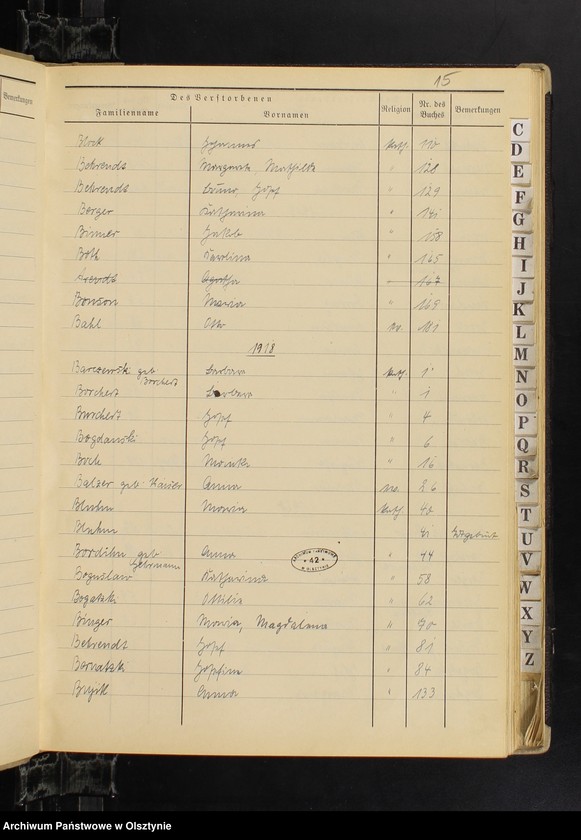 15
Bemerkungen
Des Verstorbenen
Familienname Vornamen Religion Nr. des Buches Bemerkungen
Block Johannes kath. 110
Behrendt Margarete, Mathilde " 128
Behrendt Josef " 129
Berger Katharina " 141
Birner Jakob " 158
Both Karolina " 165
Arendt Agatha " 167
Bonson Maria " 169
Bahl Otto ev. 181
1918
Barczewski geb. Borchert Barbara kath. 1
Borchert Barbara " 1
Burchert Josef " 4
Bogdanski Josef " 6
Bock Monika " 16
Balzer geb. Hauser Anna ev. 26
Bluhm Maria kath. 40
Bluhm " 41
Bordihn geb. Anna " 44
Boguslaw Katharina " 58
Bogatzki Ottilie " 62
Binger Maria, Magdalena " 70
Behrendt Josef " 81
Bernatzki Josefine " 84
Anna " 133
ARCHIWUM PAŃSTWOWE
* 42 *
W OLSZTYNIE
C
D
E
F
G
H
I
J
K
L
M
N
O
P
Q
R
S
T
U
V
W
X
Y
Z
Archiwum Państwowe w Olsztynie